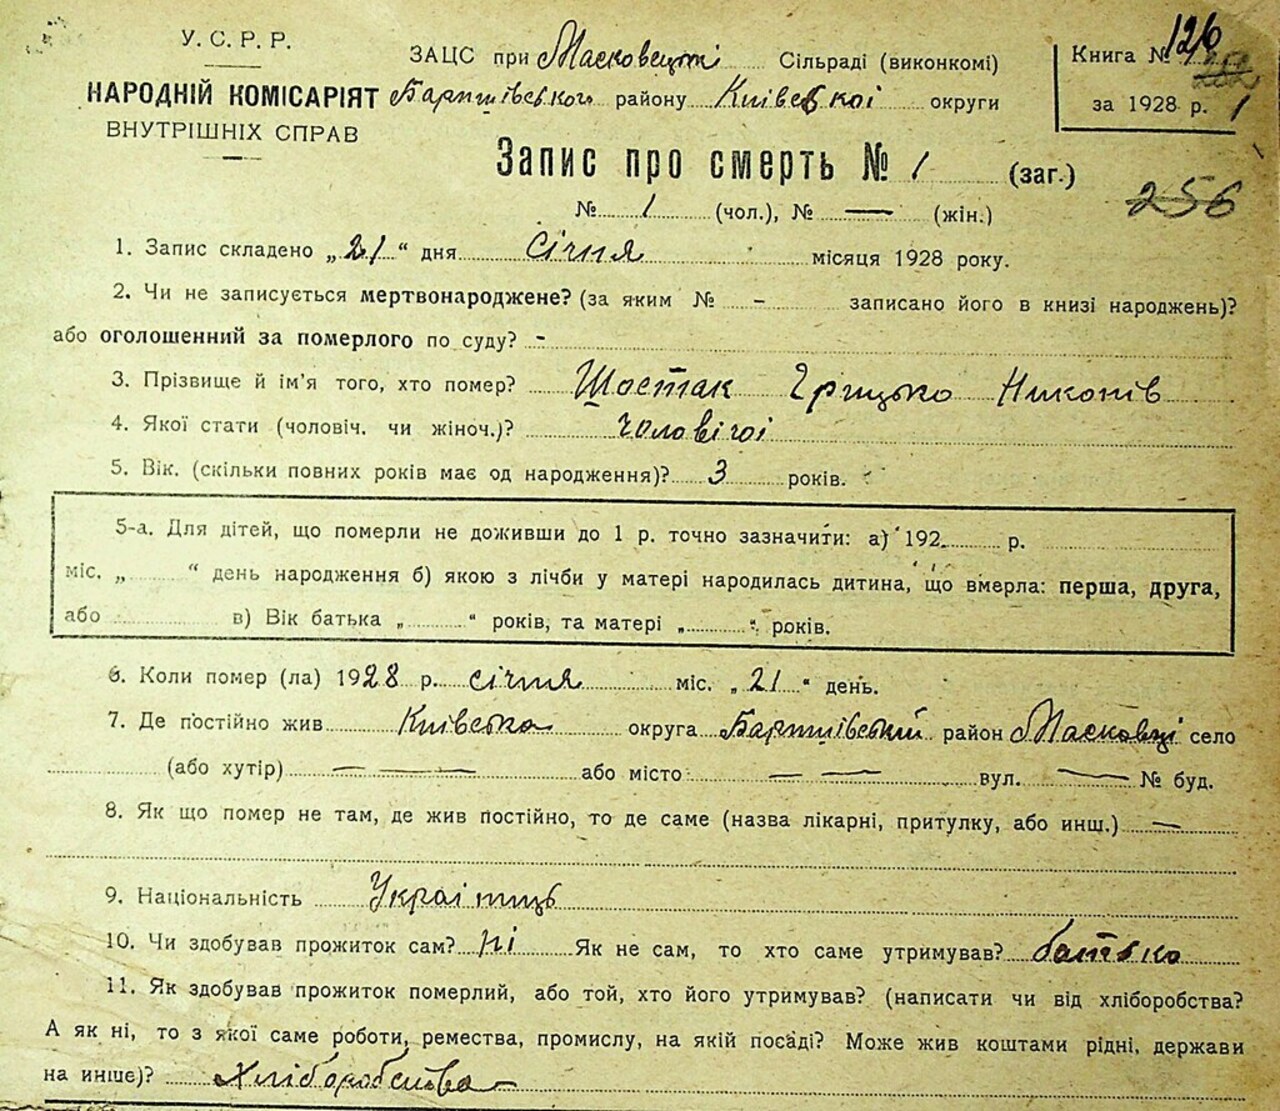 У. С. Р. Р.
НАРОДНІЙ КОМІСАРІЯТ
ВНУТРІШНІХ СПРАВ
ЗАЦС при Масковецькі Сільраді (виконкомі)
Баришівського району Київської округи
Книга № 126
за 1928 р. 1
Запис про смерть № 1 (заг.)
№ 1 (чол.), № — (жін.)
256
1. Запис складено „21“ дня січня місяця 1928 року.
2. Чи не записується мертвонароджене? (за яким № - записано його в книзі народжень)?
або оголошенний за померлого по суду? -
3. Прізвище й ім'я того, хто помер? Шостак Грицько Никонів
4. Якої стати (чоловіч. чи жіноч.)? чоловічої
5. Вік. (скільки повних років має од народження)? 3 років.
5-а. Для дітей, що померли не доживши до 1 р. точно зазначити: а) 192 р.
міс. „ “ день народження б) якою з лічби у матері народилась дитина, що вмерла: перша, друга,
або в) Вік батька „ “ років, та матері „ “ років.
6. Коли помер (ла) 1928 р. січня міс. „21“ день.
7. Де постійно жив Київська округа Баришівський район Масковці село
(або хутір) — — або місто — — вул. — № буд.
8. Як що помер не там, де жив постійно, то де саме (назва лікарні, притулку, або инш.) —
9. Національність Україниць
10. Чи здобував прожиток сам? Ні Як не сам, то хто саме утримував? батько
11. Як здобував прожиток померлий, або той, хто його утримував? (написати чи від хліборобства?
А як ні, то з якої саме роботи, ремества, промислу, на якій посаді? Може жив коштами рідні, держави
на инше)? Хліборобства